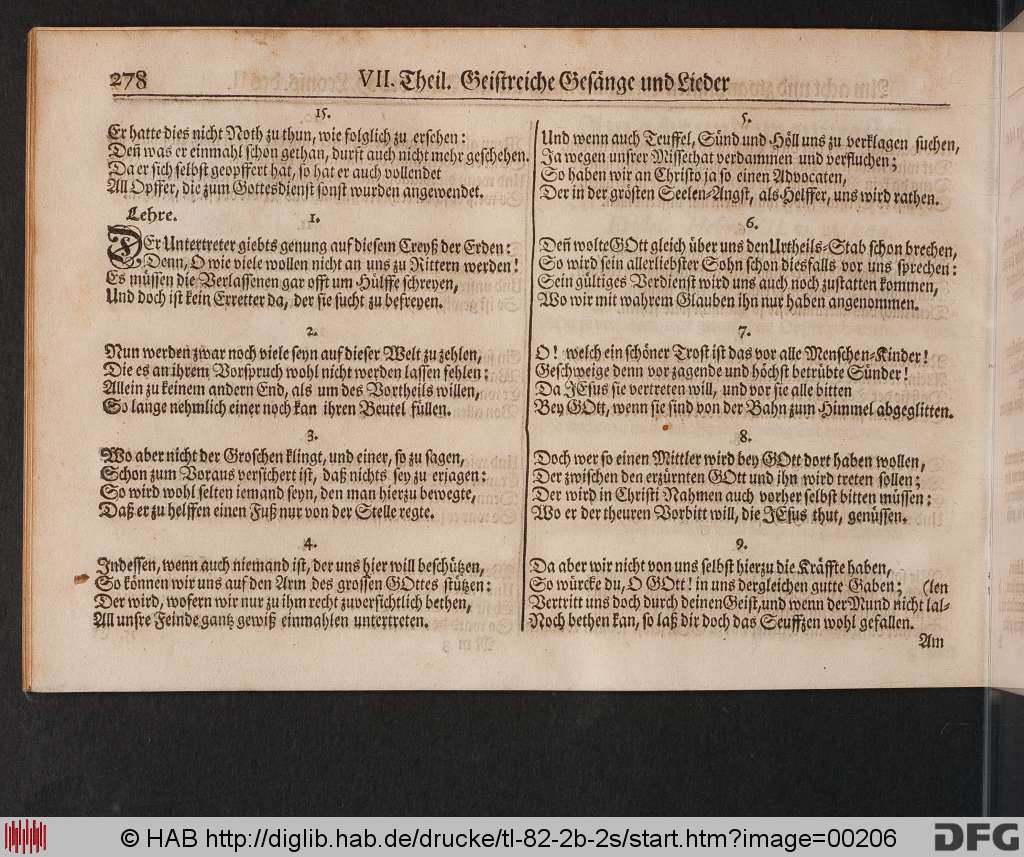 278
VII. Theil. Geistreiche Gesänge und Lieder
15.
Er hatte dies nicht Noth zu thun, wie folglich zu ersehen:
Deñ was er einmahl schon gethan, durft auch nicht mehr geschehen.
Da er sich selbst geopffert hat, so hat er auch vollendet
All Opffer, die zum Gottesdienst sonst wurden angewendet.
Lehre.
1.
DEr Untertreter giebts genung auf diesem Creyß der Erden:
Denn, O wie viele wollen nicht an uns zu Rittern werden!
Es müssen die Verlassenen gar offt um Hülffe schreyen,
Und doch ist kein Erretter da, der sie sucht zu befreyen.
2.
Nun werden zwar noch viele seyn auf dieser Welt zu zehlen,
Die es an ihrem Vorspruch wohl nicht werden lassen fehlen:
Allein zu keinem andern End, als um des Vortheils willen,
So lange nehmlich einer noch kan ihren Beutel füllen.
3.
Wo aber nicht der Groschen klingt, und einer, so zu sagen,
Schon zum Voraus versichert ist, daß nichts sey zu erjagen:
So wird wohl selten iemand seyn, den man hierzu bewegte,
Daß er zu helffen einen Fuß nur von der Stelle regte.
4.
Indessen, wenn auch niemand ist, der uns hier will beschützen,
So können wir uns auf den Arm des grossen GOttes stützen:
Der wird, wofern wir nur zu ihm recht zuversichtlich bethen,
All unsre Feinde gantz gewiß einmahlen untertreten.
5.
Und wenn auch Teuffel, Sünd und Höll uns zu verklagen suchen,
Ja wegen unsrer Missethat verdammen und verfluchen;
So haben wir an Christo ja so einen Advocaten,
Der in der grösten Seelen-Angst, als Helffer, uns wird rathen.
6.
Deñ wolte GOtt gleich über uns den Urtheils-Stab schon brechen,
So wird sein allerliebster Sohn schon diesfalls vor uns sprechen:
Sein gültiges Verdienst wird uns auch noch zustatten kommen,
Wo wir mit wahrem Glauben ihn nur haben angenommen.
7.
O! welch ein schöner Trost ist das vor alle Menschen-Kinder!
Geschweige denn vor zagende und höchst betrübte Sünder!
Da JEsus sie vertreten will, und vor sie alle bitten
Bey GOtt, wenn sie sind von der Bahn zum Himmel abgeglitten.
8.
Doch wer so einen Mittler wird bey GOtt dort haben wollen,
Der zwischen den erzürnten GOtt und ihn wird treten sollen;
Der wird in Christi Nahmen auch vorher selbst bitten müssen:
Wo er der theuren Vorbitt will, die JEsus thut, genüssen.
9.
Da aber wir nicht von uns selbst hierzu die Kräffte haben,
So würcke du, O GOtt! in uns dergleichen gutte Gaben; (len
Vertritt uns doch durch deinen Geist, und wenn der Mund nicht lal-
Noch bethen kan, so laß dir doch das Seuffzen wohl gefallen.
Am
© HAB http://diglib.hab.de/drucke/tl-82-2b-2s/start.htm?image=00206
DFG